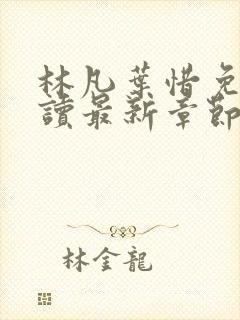 林凡葉惜免
讀最新章節
林金龍